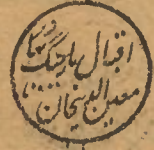 اقبال یار جنگ
معین الدین خان